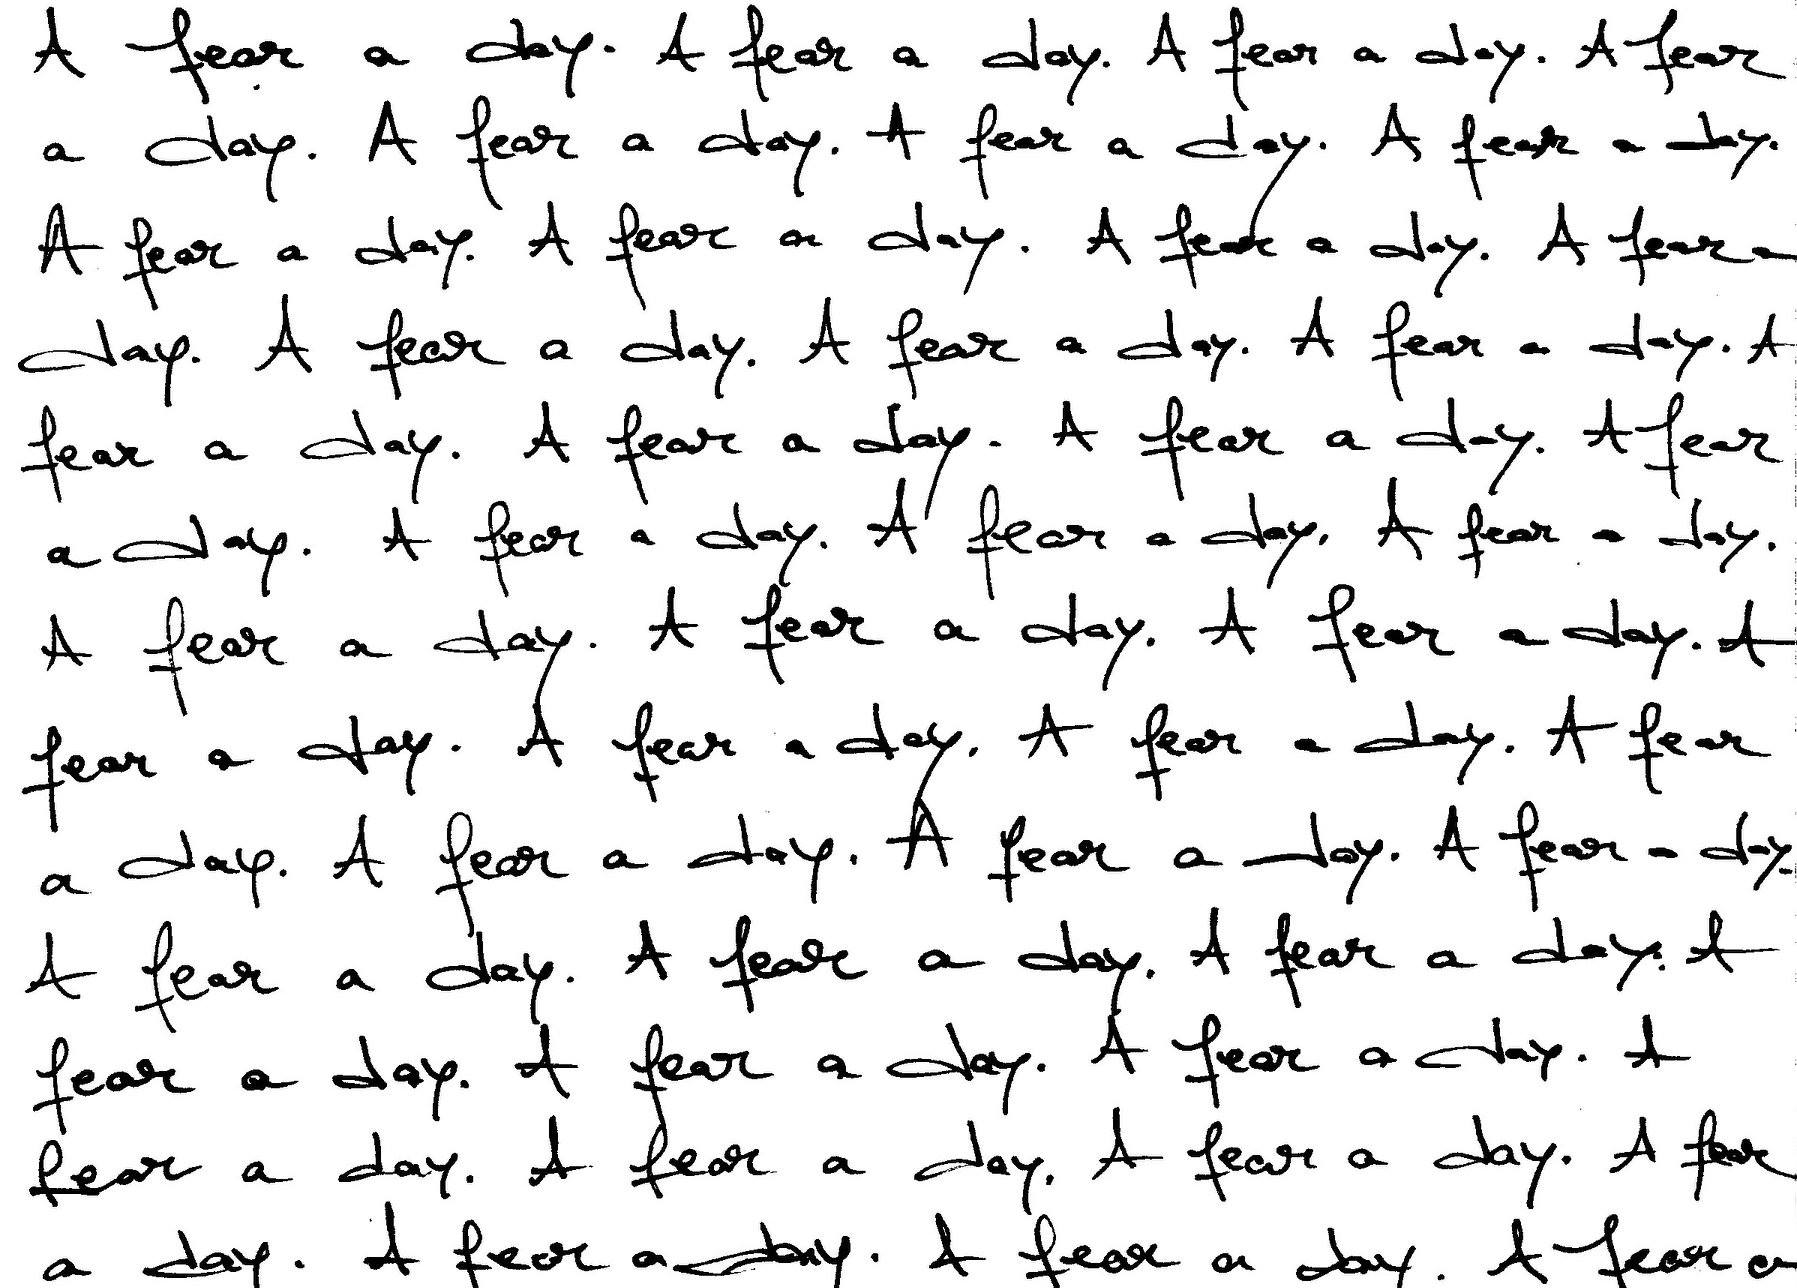 A fear a day. A fear a day. A fear a day. A fear
a day. A fear a day. A fear a day. A fear a day.
A fear a day. A fear a day. A fear a day. A fear a
day. A fear a day. A fear a day. A fear a day. A
fear a day. A fear a day. A fear a day. A fear
a day. A fear a day. A fear a day. A fear a day.
A fear a day. A fear a day. A fear a day. A
fear a day. A fear a day. A fear a day. A fear
a day. A fear a day. A fear a day. A fear a day.
A fear a day. A fear a day. A fear a day. A
fear a day. A fear a day. A fear a day. A
fear a day. A fear a day. A fear a day. A fear
a day. A fear a day. A fear a day. A fear a